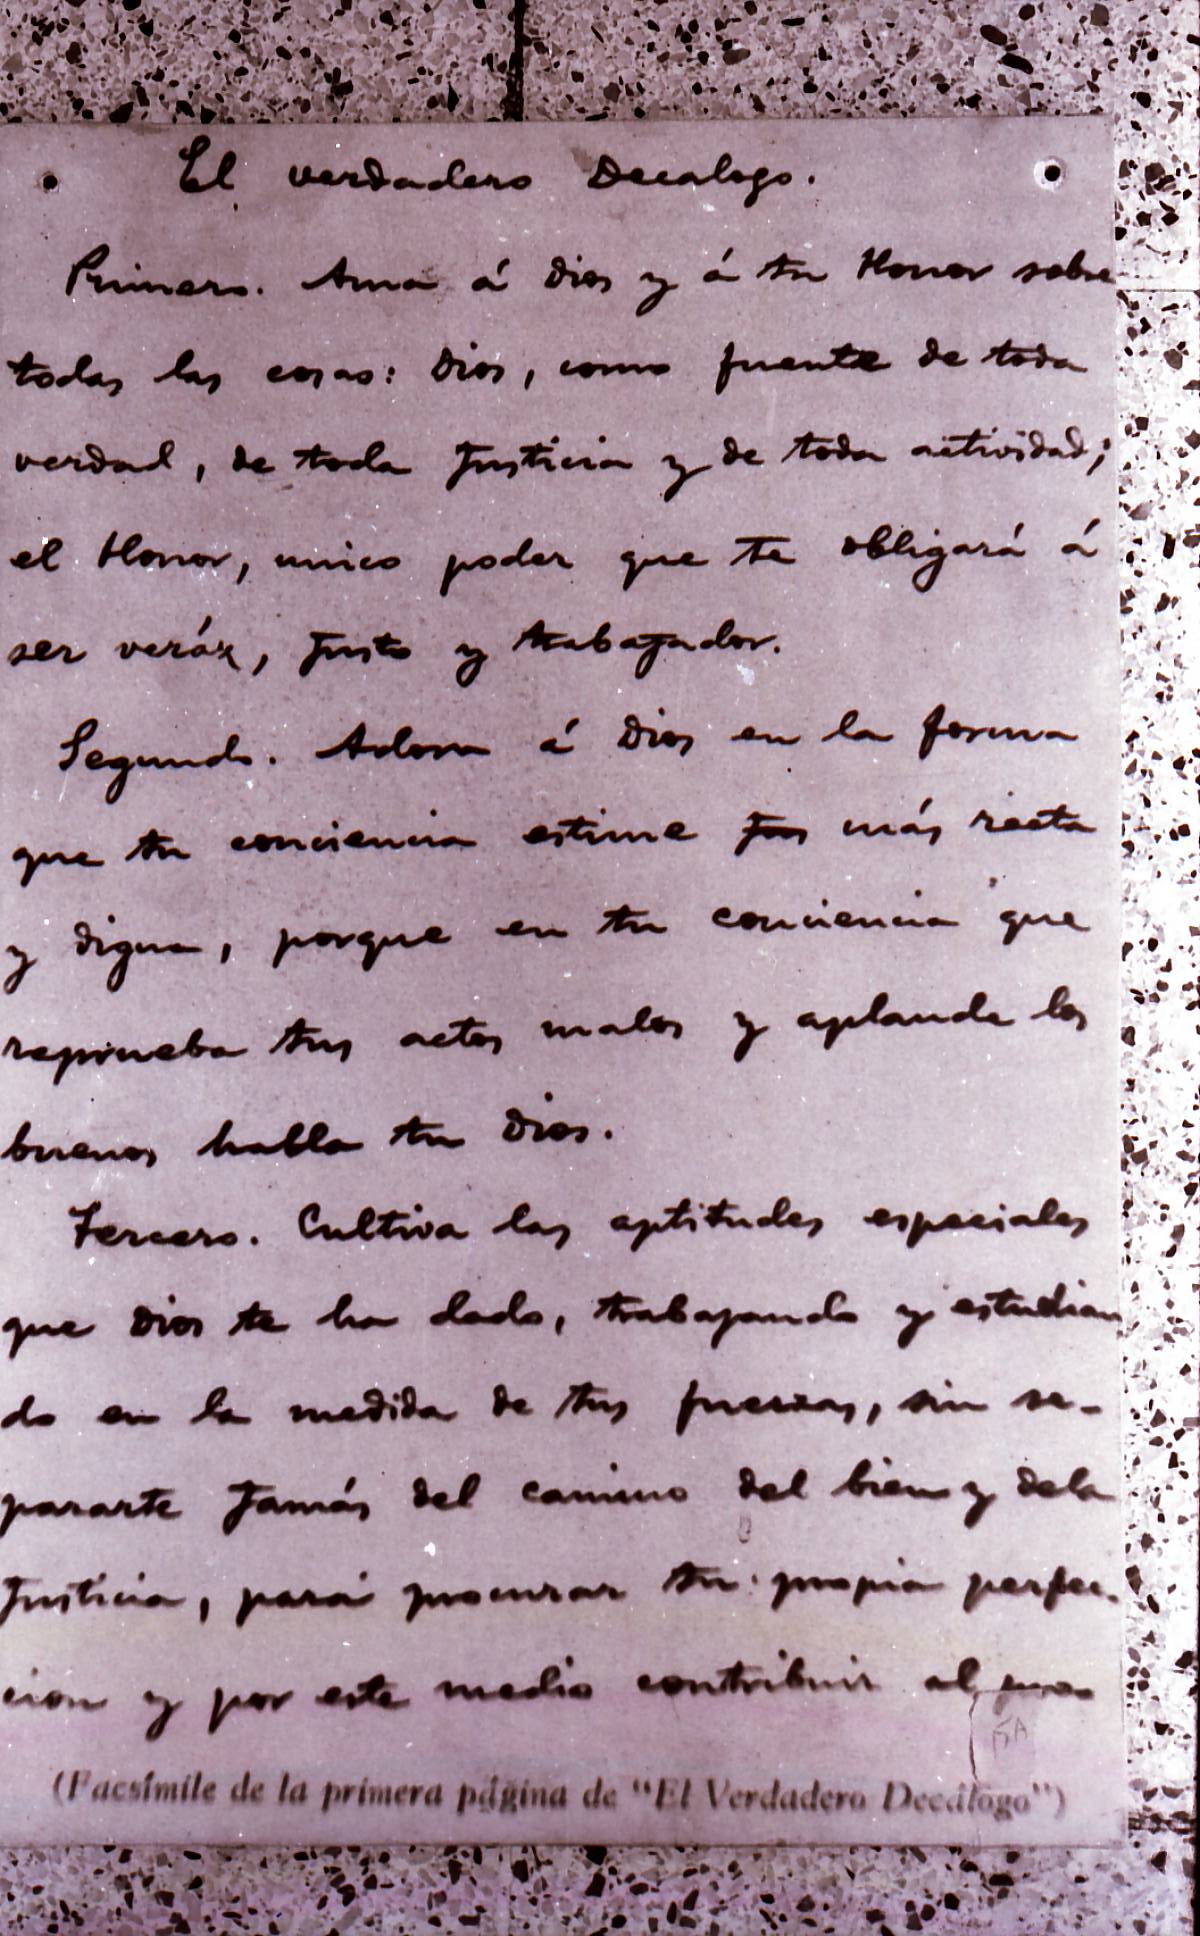 El verdadero Decalogo.
Primero. Ama á Dios y á tu Honor sobre
todas las cosas: Dios, como fuente de toda
verdad, de toda Justicia y de toda actividad;
el Honor, unico poder que te obligará á
ser veráz, Justo y trabaJador.
Segundo. Adora á Dios en la forma
que tu conciencia estime más recta
y digna, porque en tu conciencia que
reprueba tus actos malos y aplaude los
buenos habla tu Dios.
Tercero. Cultiva las aptitudes especiales
que Dios te ha dado, trabajando y estudian
do en la medida de tus fuerzas, sin se-
pararte Jamás del camino del bien y dela
Justicia, para procurar tu propia perfec-
cion y por este medio contribuir al
(Facsímile de la primera página de "El Verdadero Decálogo")